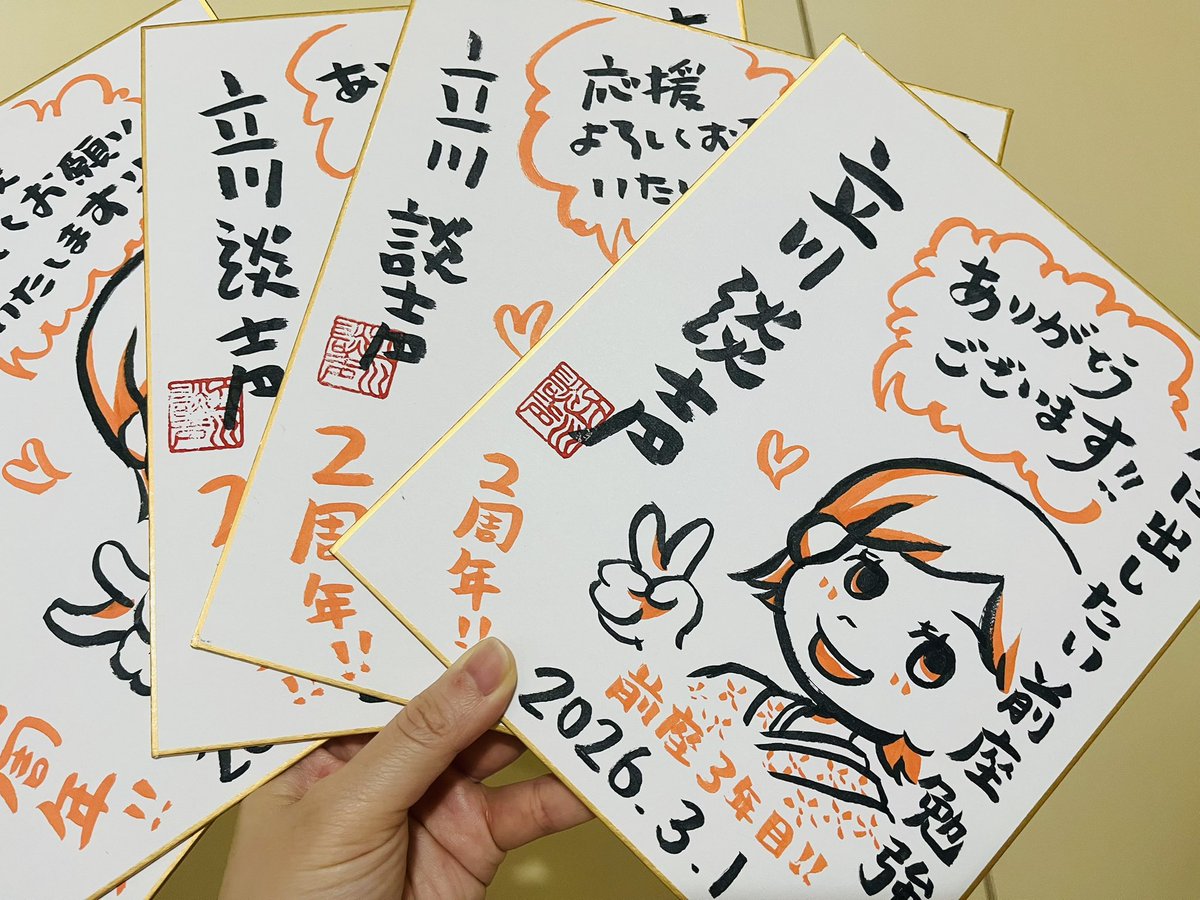 お願い
いたします
周年!!
立川談声
あ
立川談声
応援
よろしくお
いたし
2周年!!
立川談声
ありがとう
ございます!!
2周年!!
に出したい 前座勉強
前座3年目!!
2026.3.1